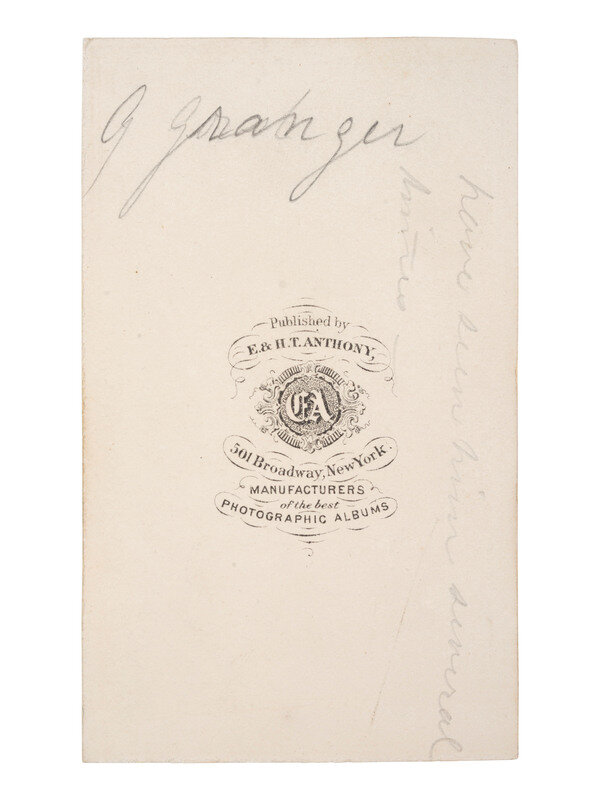 G Granger
have seen him several
times
Published by
E. & H. T. ANTHONY,
EA
501 Broadway, New York.
MANUFACTURERS
of the best
PHOTOGRAPHIC ALBUMS